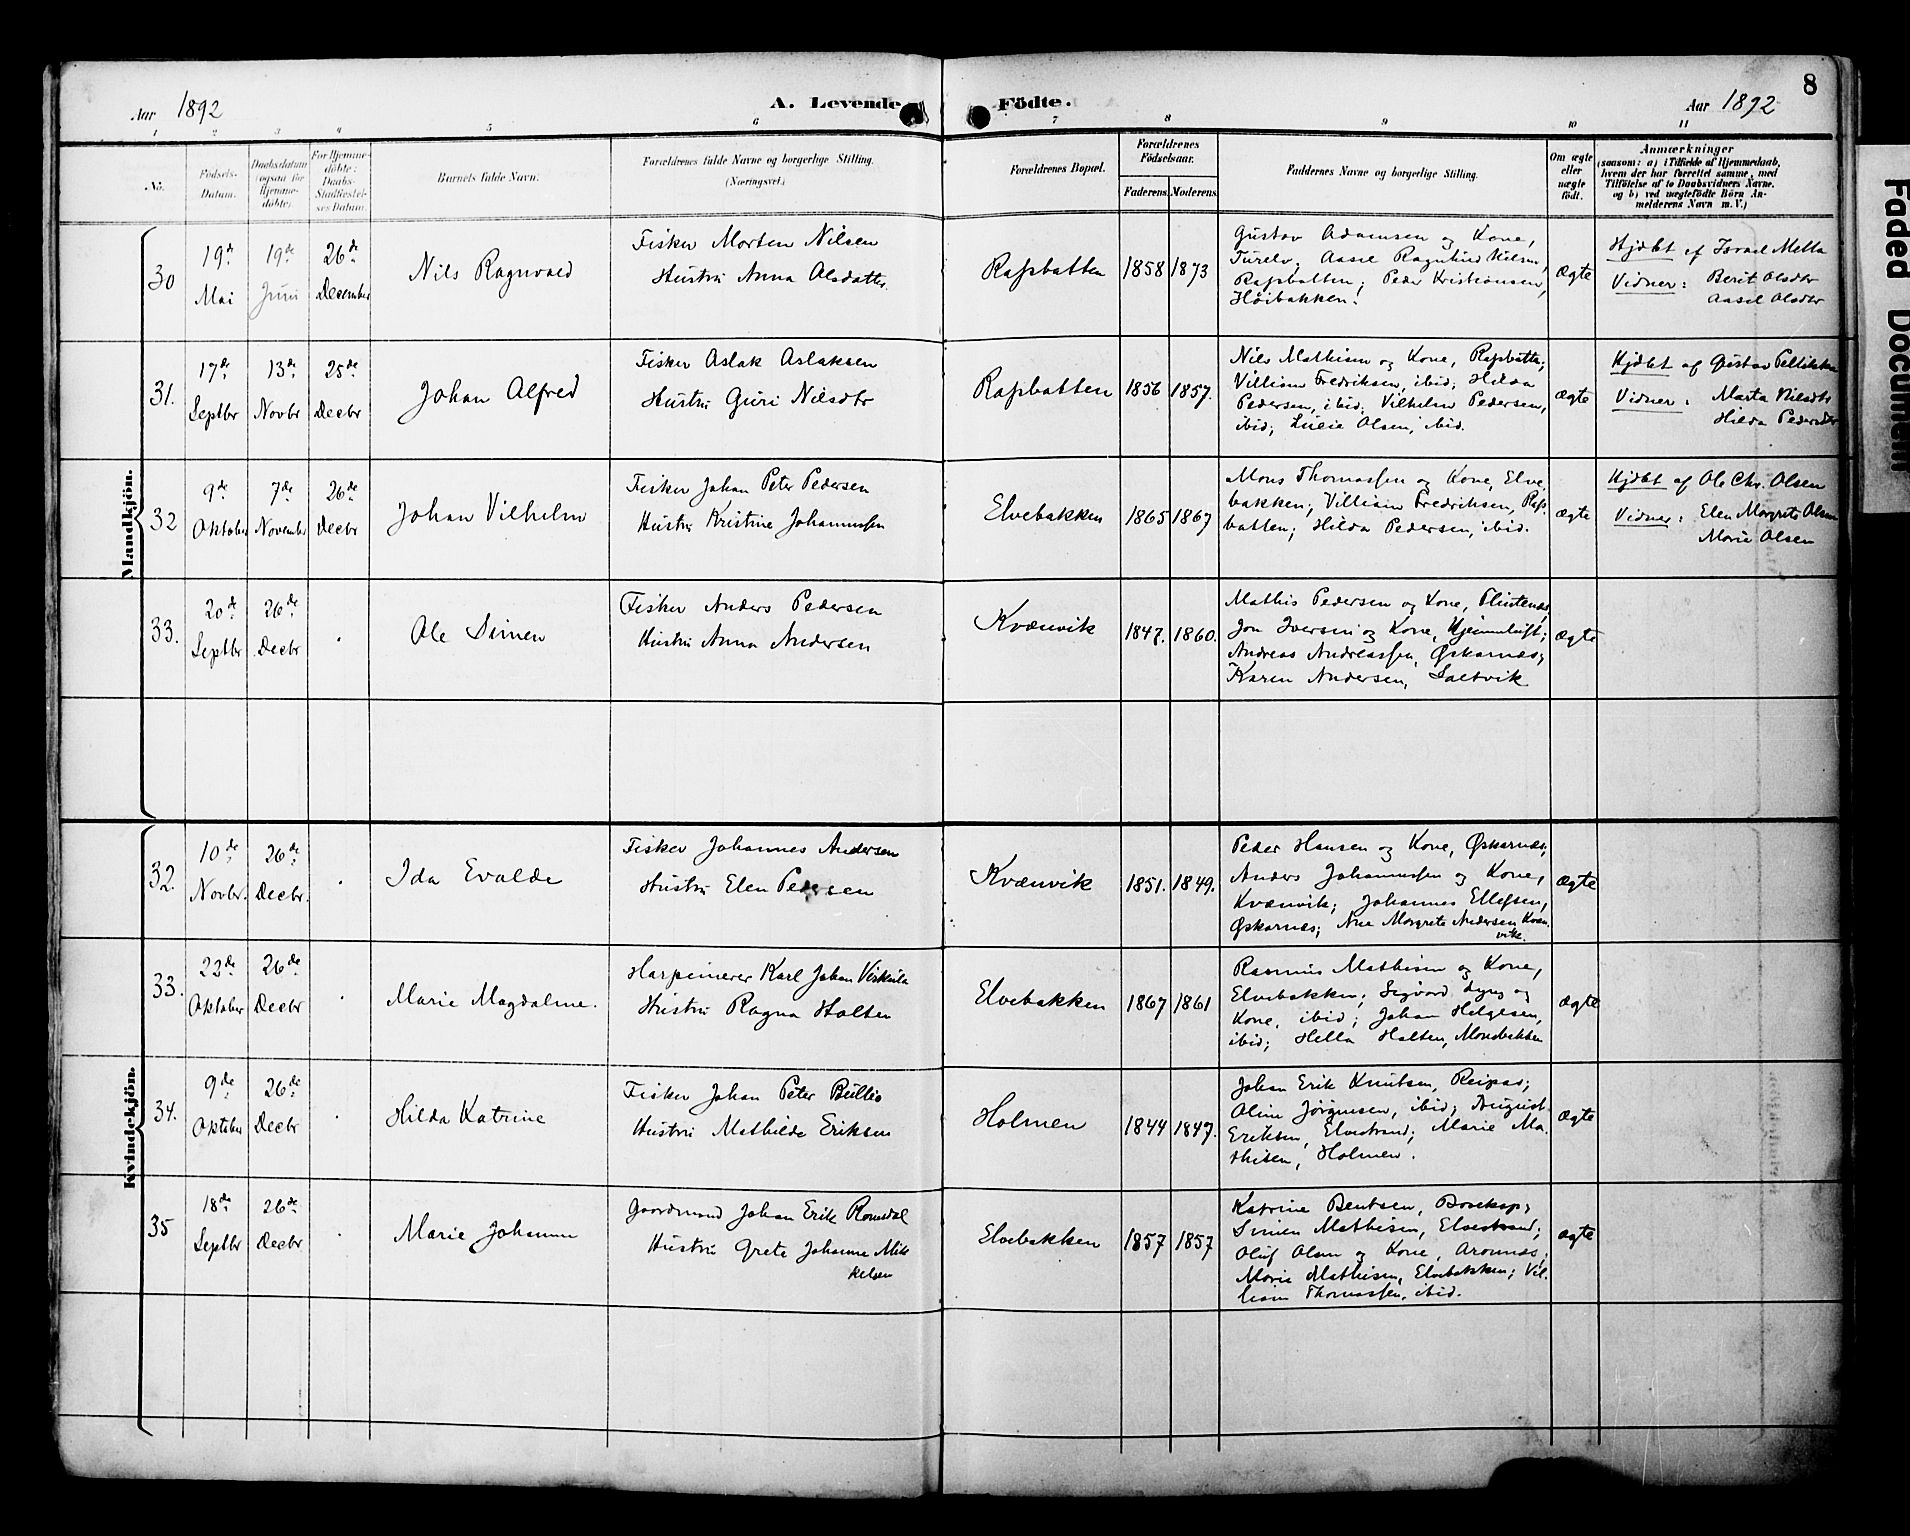 8
Aar 1892
A. Levende Födte.
Aar 1892
1 2 3 4 5 6 7 8 9 10 11
No.
Födsels-
Datum.
Daabsdatum
(ogsaa for
Hjemme-
döbte).
For Hjemme-
döbte:
Daabs-
Stadfæstel-
ses Datum.
Barnets fulde Navn.
Forældrenes fulde Navne og borgerlige Stilling.
(Næringsvei.)
Forældrenes Bopæl.
Forældrenes
Födselsaar.
Faderens. Moderens.
Faddernes Navne og borgerlige Stilling.
Om ægte
eller
uægte
födt.
Anmærkninger
(saasom: a) i Tilfælde af Hjemmedaab,
hvem der har forrettet samme, med
Tilföielse af to Daabsvidners Navne,
og b) ved uægtefödte Börn An-
melderens Navn m. V.)
Mandkjön.
30
19de
Mai
19de
Juni
26de
December
Nils Ragnvald
Fisker Morten Nilsen
Hustru Anna Olsdatter
Rafsbatten
1858 1873
Gustav Adamsen og Kone,
Turelv; Aasel Ragnhild Nilsen,
Rafsbatten; Peder Kristiansen,
Höibakken.
ægte
Hjdbt af Israel Mella
Vidner: Berit Olsdtr
Aasel Olsdtr
31.
17de
Septbr
13de
Novbr
25de
Decbr
Johan Alfred
Fisker Aslak Aslaksen
Hustru Guri Nilsdtr
Rafsbatten
1856 1857.
Nils Mathisen og Kone, Rafsbatten;
Villiam Fredriksen, ibid; Hilda
Pedersen, ibid; Vilhelm Pedersen,
ibid; Lucie Olsen, ibid.
ægte
Hjdbt af Gustav
Vidner: Marta Nilsdtr
Hilda Pedersdtr
32
9de
Oktober
7de
November
26de
Decbr
Johan Vilhelm
Fisker Johan Peter Pedersen
Hustru Kristine Johannessen
Elvebakken
1865 1867
Mons Thomassen og Kone, Elve-
bakken; Villiam Fredriksen, Rafs-
batten; Hilda Pedersen, ibid.
ægte
Hjdbt af Ole Chr. Olsen
Vidner: Elen Margrete Olsen
Marie Olsen
33.
20de
Septbr
26de
Decbr
Ole Simen
Fisker Anders Pedersen
Hustru Anna Andersen
Kvænvik
1847. 1860.
Mathis Pedersen og Kone, Flintenæs;
Jon Iversen og Kone, Hjemmeluft;
Andreas Andreassen, Øskarnæs;
Karen Andersen, Saltvik
ægte
Kvindekjön.
32.
10de
Novbr.
26de
Decbr.
Ida Evalde
Fisker Johannes Andersen
Hustru Elen Pedersen
Kvænvik
1851. 1849.
Peder Hansen og Kone, Øskarnæs;
Anders Johannessen og Kone,
Kvænvik; Johannes Ellefsen,
Øskarnæs; Ane Margrete Andersen Kvæn-
vik.
ægte
33.
22de
Oktober
26de
Decbr
Marie Magdalene.
Karl Johan Viskula
Hustru Ragna Holten
Elvebakken
1867 1861
Rasmus Mathisen og Kone,
Elvebakken; Sigvard Lyng og
Kone, ibid; Johan Helgesen,
ibid; Hella Holten,
ægte
34.
9de
Oktober
26de
Decbr
Hilda Katrine
Fisker Johan Peter Bullio
Hustru Mathilde Eriksen
Holmen
1844 1847.
Johan Erik Knutsen, Reipas;
Oline Jörgensen, ibid; August
Eriksen, Elvestrand; Marie Ma-
thisen, Holmen.
ægte
35
18de
Septbr
26de
Decbr
Marie Johanne
Gaardmand Johan Erik Romsdal
Hustru Grete Johanne Mik-
kelsen
Elvebakken
1857 1857
Katrine Bentsen, Bosekop;
Simen Mathisen, Elvestrand;
Oluf Olsen og Kone, Aronnæs;
Marie Mathisen, Elvebakken; Vil-
liam Thomassen, ibid.
ægte
Faded Document